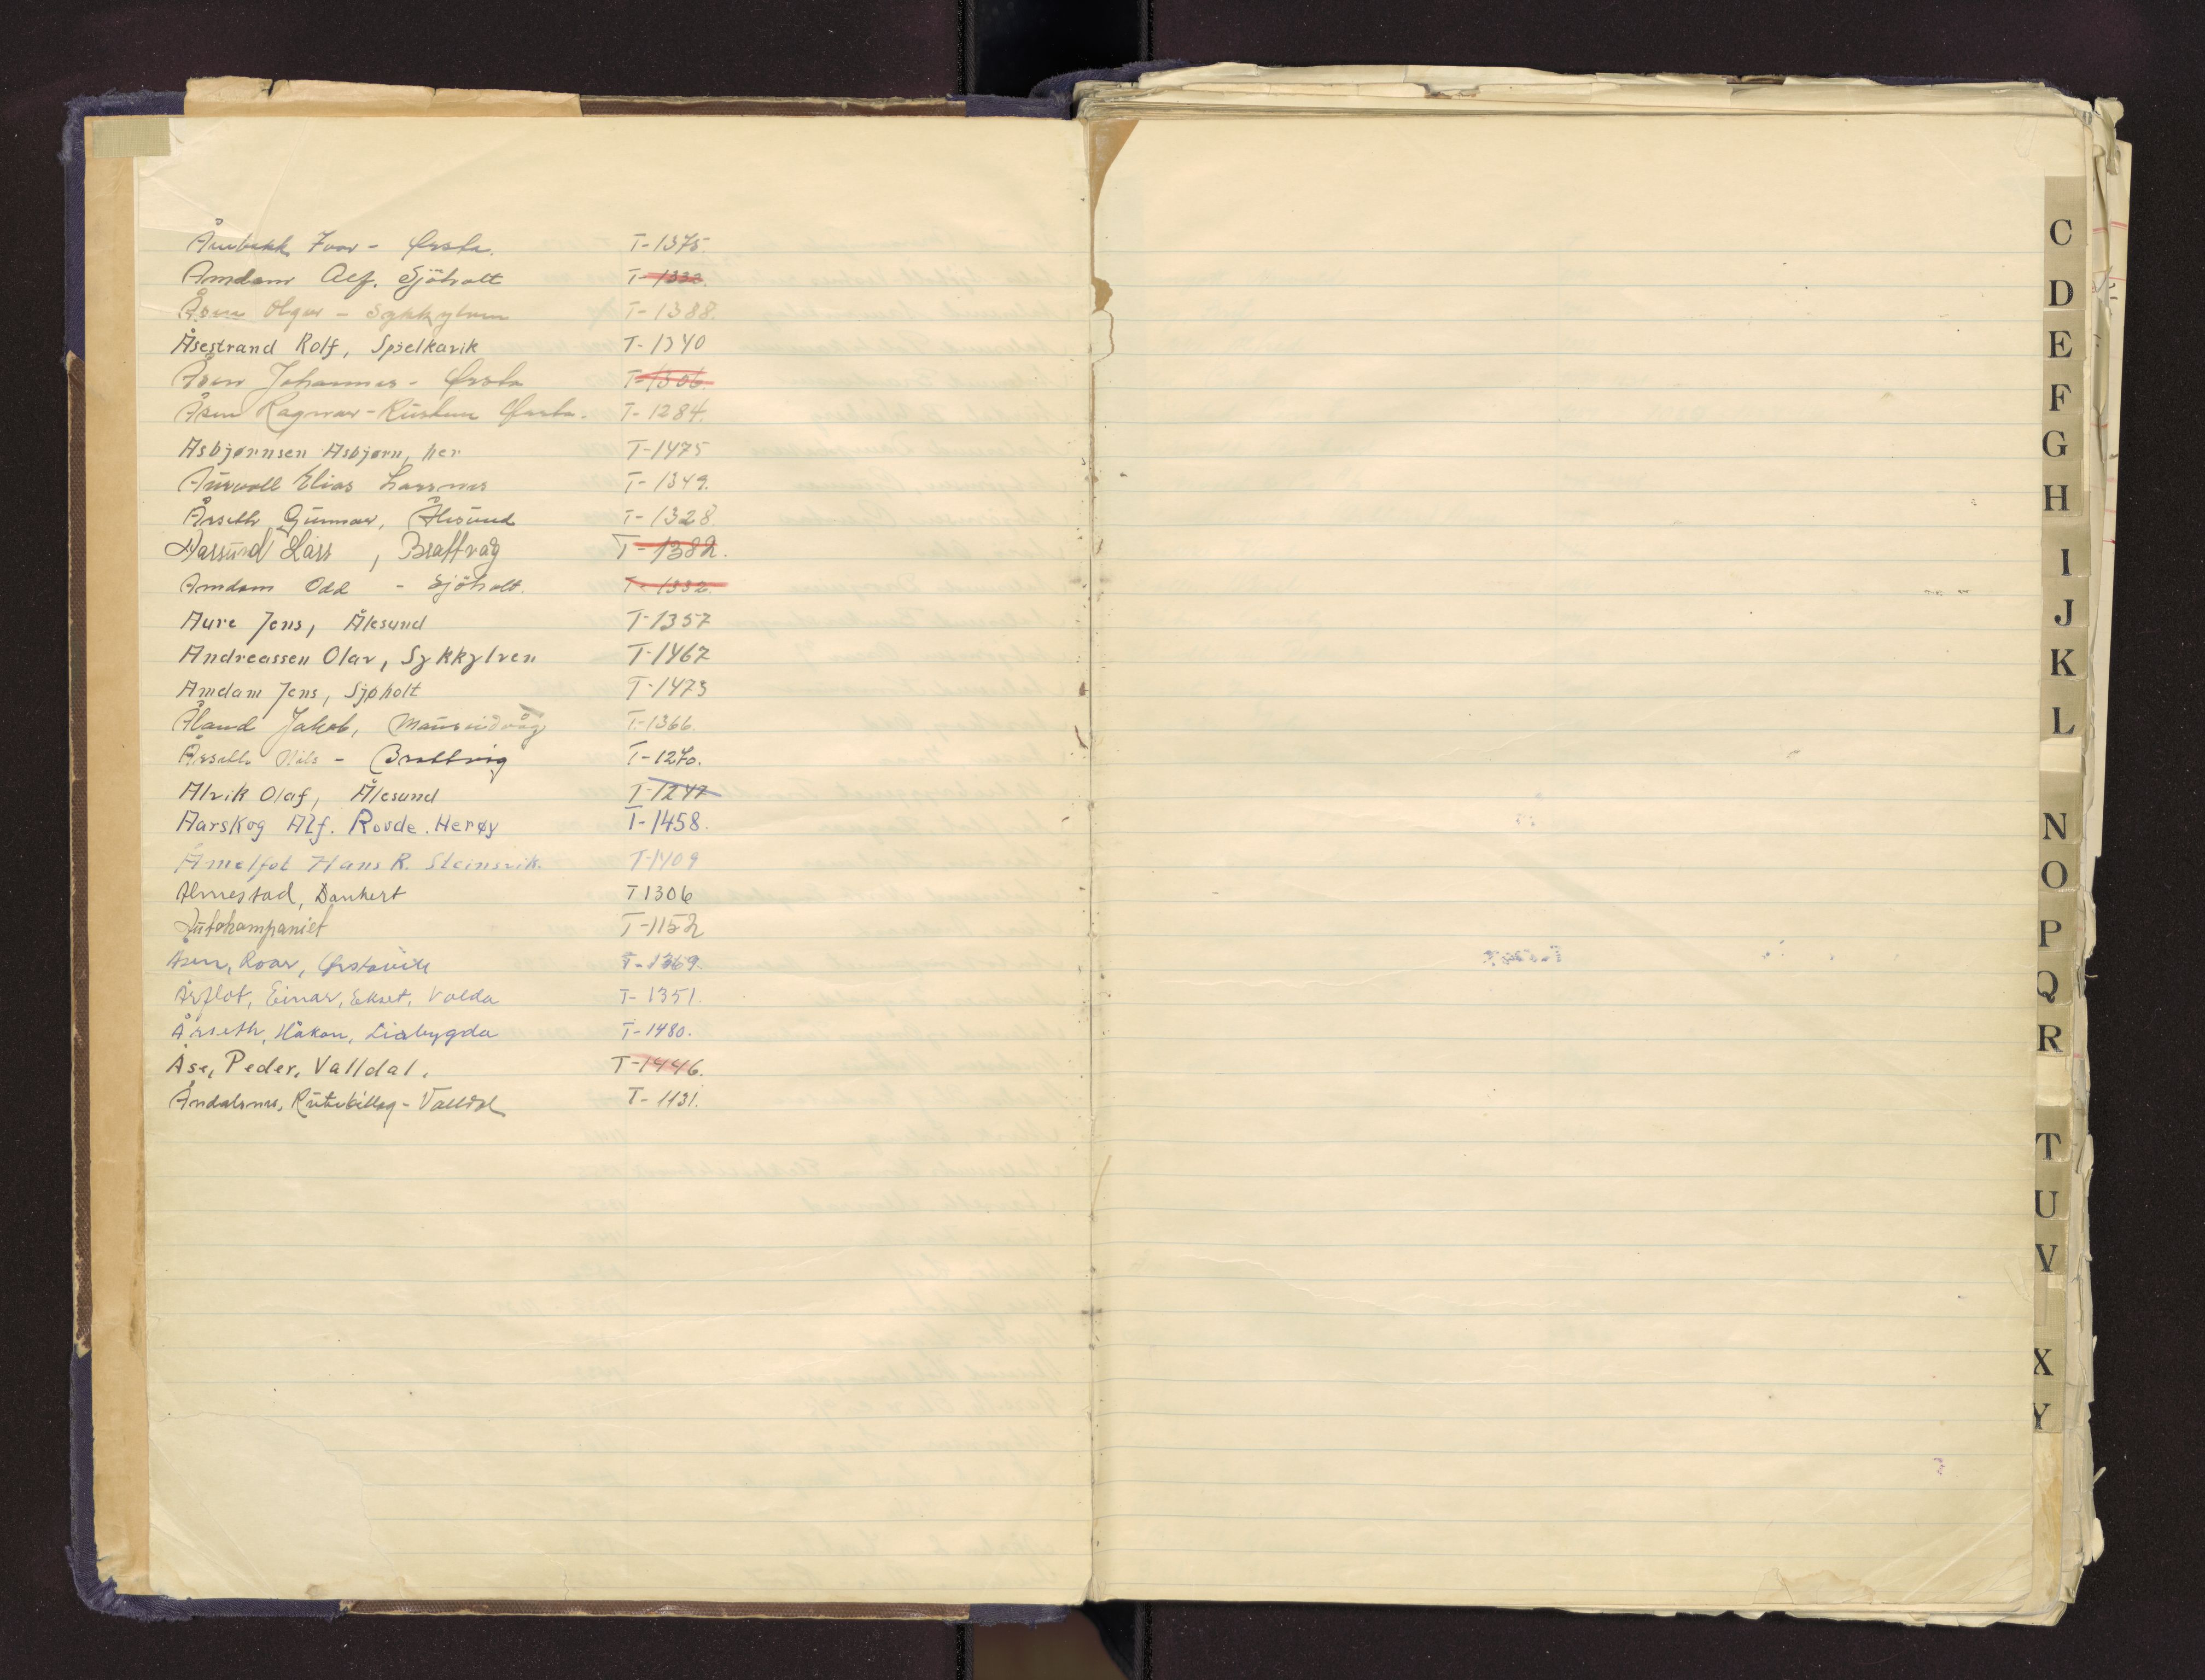 Årsbakk Ivar - Ørsta. T-1375.
Amdam Alf. Sjöholt T-1332.
Åsen Olgar - Sykkylven T-1388.
Åsestrand Rolf, Spjelkavik T-1340
Åsen Johannes - Ørsta T-1306.
Åsen Ragnar - Ørsta. T-1284.
Asbjørnsen Asbjørn, her T-1475
Aurvoll Elias Larsnes T-1349.
Årseth, Gunnar, Ålesund T-1328
Aarsund Lars, Brattvåg T-1382.
Amdam Odd - Sjöholt. T-1332.
Aure Jens, Ålesund T-1357
Andreassen Olav, Sykkylven T-1467
Amdam Jens, Sjøholt T-1473
Åland Jakob, Mausundvåg T-1366.
Årseth Nils - Brattvåg T-1270.
Alvik Olaf, Ålesund T-1247
Aarskog Alf. Rovde. Herøy T-1458.
Åmelfot Hans R. Steinsvik. T-1409
Almestad, Dankert T 1306
Autokompaniet T-1152
Åsen, Roar, Ørstavik T-1369.
Årflot, Einar, Ekset, Volda T-1351.
Årseth, Håkon, Liabygda T-1480.
Åse, Peder, Valldal. T-1446.
Åndalsnes, Rutebillag - Valldal T-1131.
C
D
E
F
G
H
I
J
K
L
N
O
P
Q
R
T
U
V
X
Y